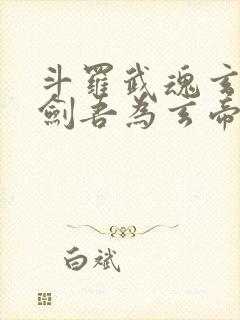 斗羅武魂玄
劍吾為玄帝
白斌